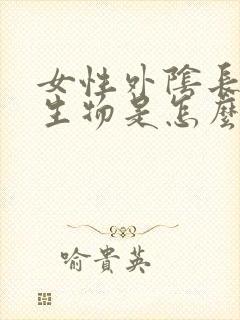 女性外陰長
生物是怎麼
喻貴英